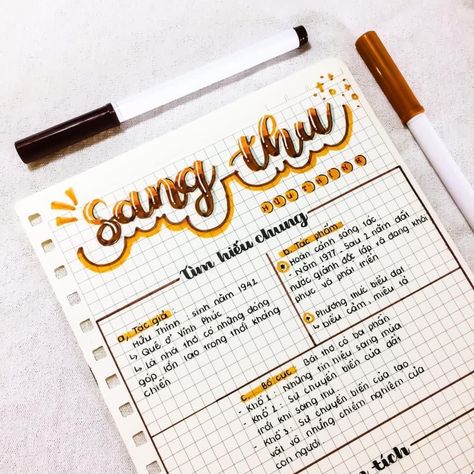 Sang thu
HỮU THỈNH
Tìm hiểu chung
a, Tác giả
Hữu Thỉnh : sinh năm 1942
↳ Quê ở Vĩnh Phúc
↳ Là nhà thơ có những đóng
góp lớn lao trong thời kháng
chiến
b. Tác phẩm
Hoàn cảnh sáng tác
- Năm 1977 - sau 2 năm đất
nước giành độc lập và đang khôi
phục và phát triển
Phương thức biểu đạt
↳ biểu cảm, miêu tả
c. Bố cục: Bài thơ có ba phần
- Khổ 1: Những tín hiệu sang mùa
- Khổ 2: Sự chuyển biến của đất
trời khi sang thu
- Khổ 3: Sự chuyển biến của tạo
vật và những chiêm nghiệm của
con người.
tích